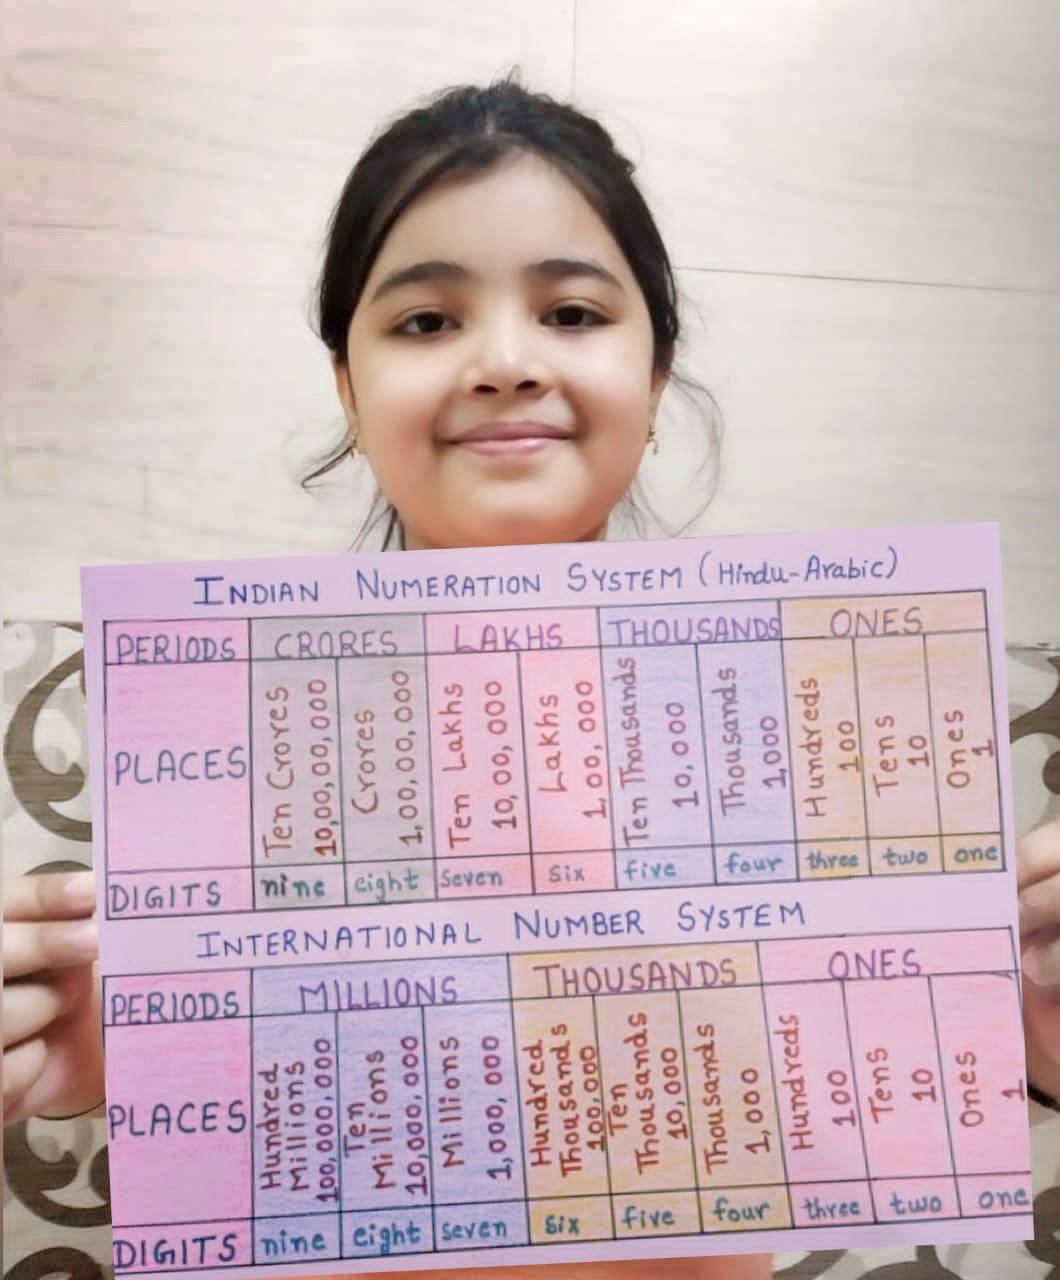 INDIAN NUMERATION SYSTEM (Hindu-Arabic)
PERIODS CRORES LAKHS THOUSANDS ONES
PLACES
Ten Crores
10,00,00,000
Crores
1,00,00,000
Ten Lakhs
10,00,000
Lakhs
1,00,000
Ten Thousands
10,000
Thousands
1,000
Hundreds
100
Tens
10
Ones
1
DIGITS nine eight seven six five four three two one
INTERNATIONAL NUMBER SYSTEM
PERIODS MILLIONS THOUSANDS ONES
PLACES
Hundred
Millions
100,000,000
Ten
Millions
10,000,000
Millions
1,000,000
Hundred
Thousands
100,000
Ten
Thousands
10,000
Thousands
1,000
Hundreds
100
Tens
10
Ones
1
DIGITS nine eight seven six five four three two one